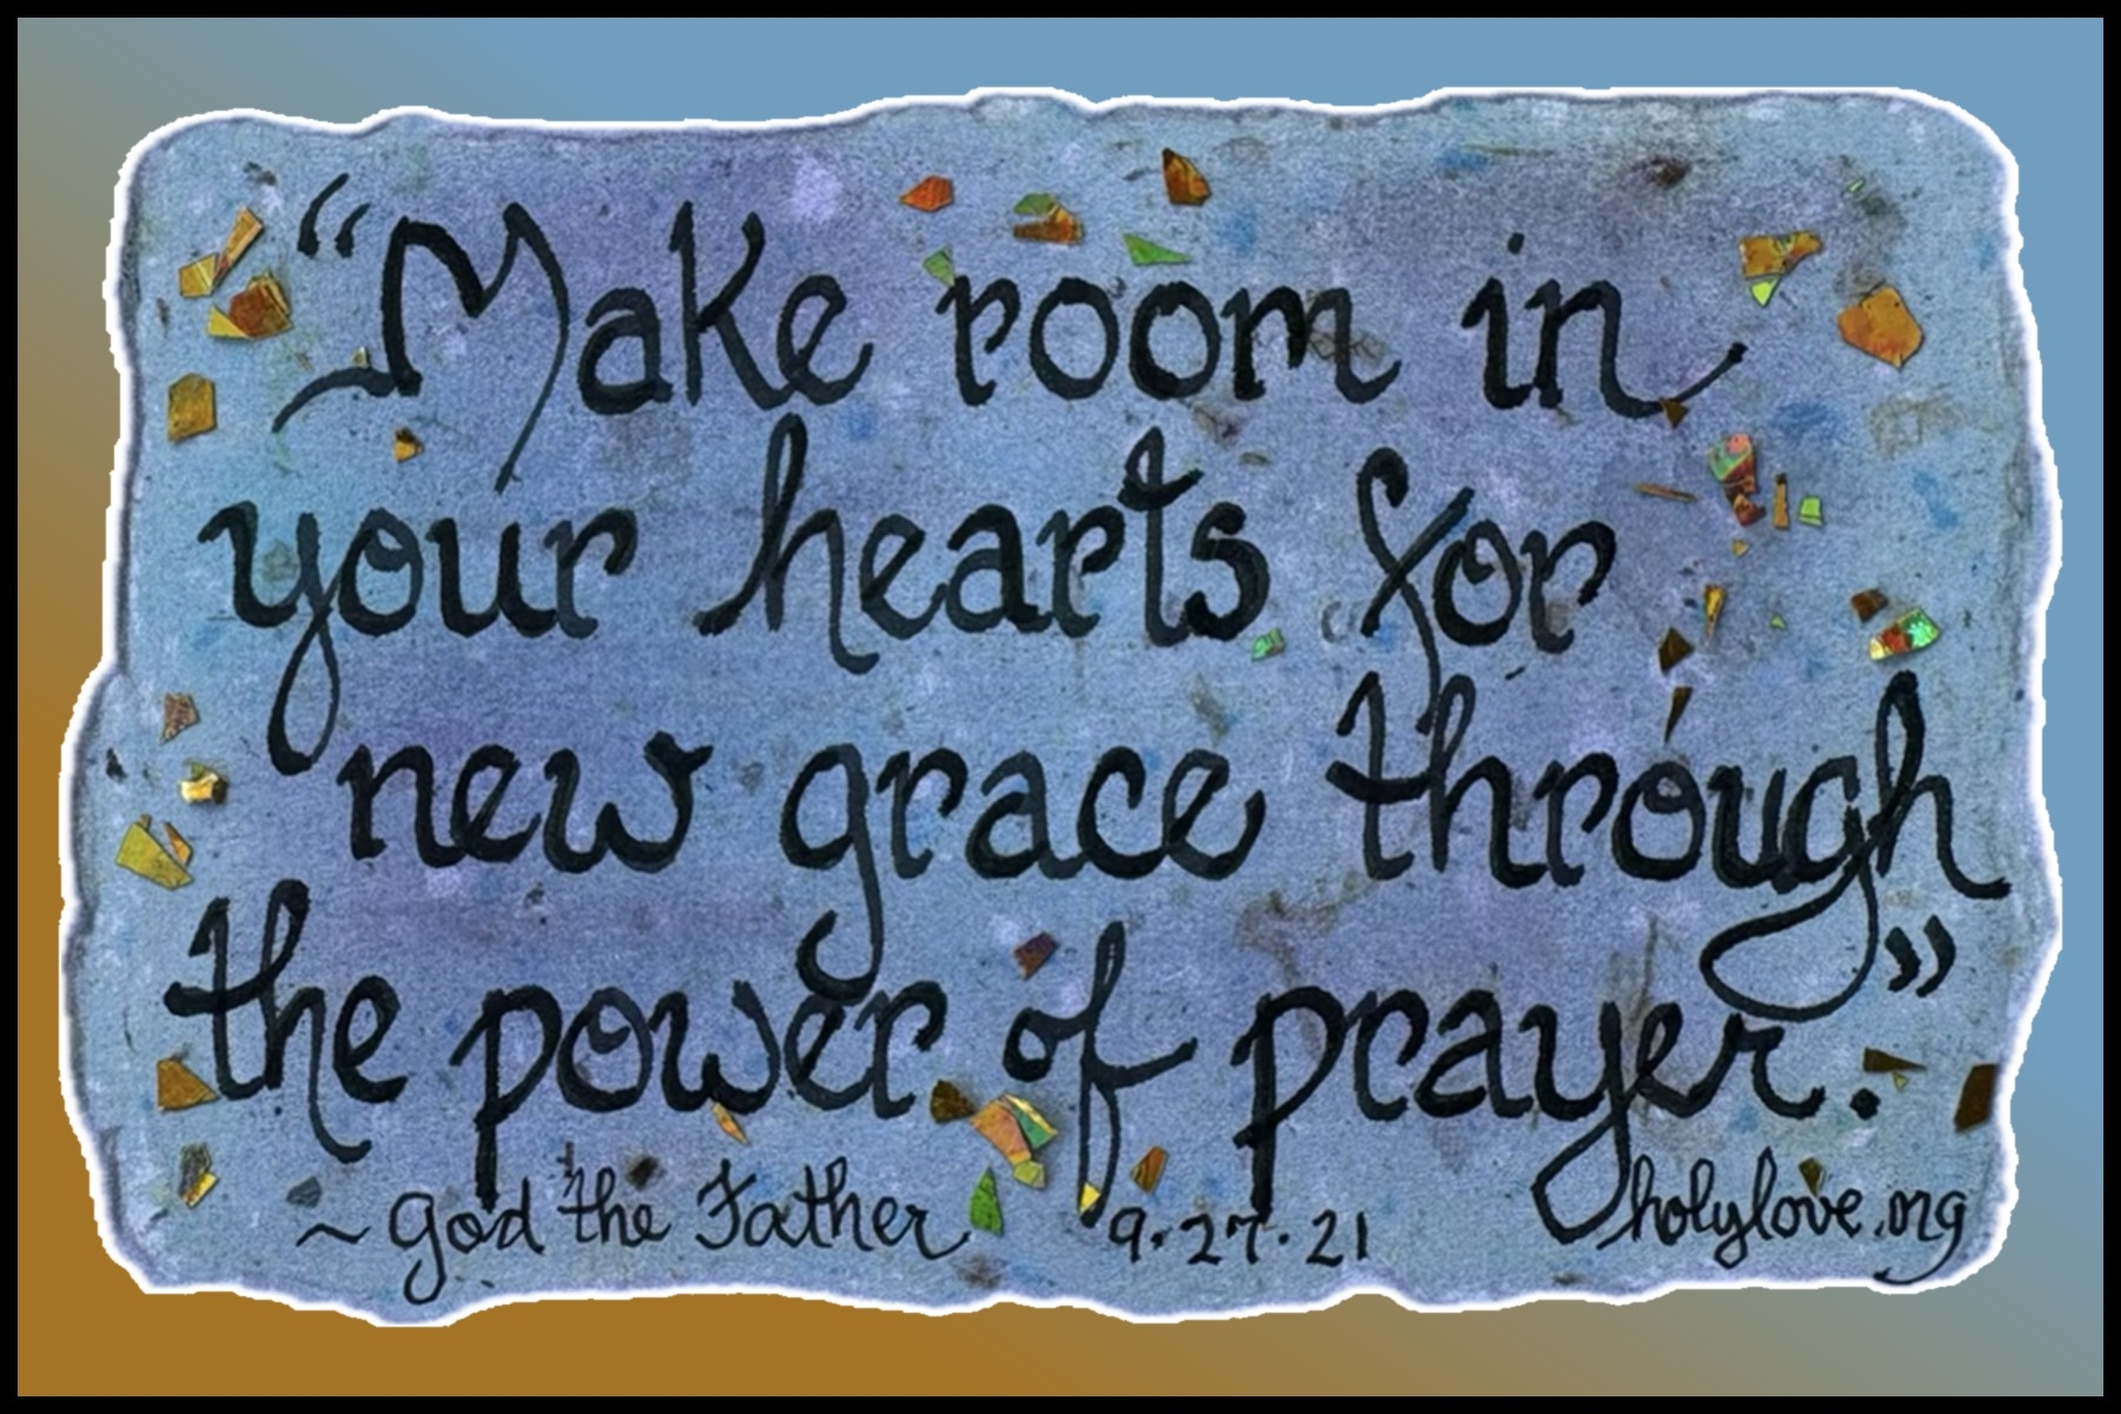 “Make room in
your hearts for
new grace through
the power of prayer.”
~ God the Father 9.27.21 holylove.org